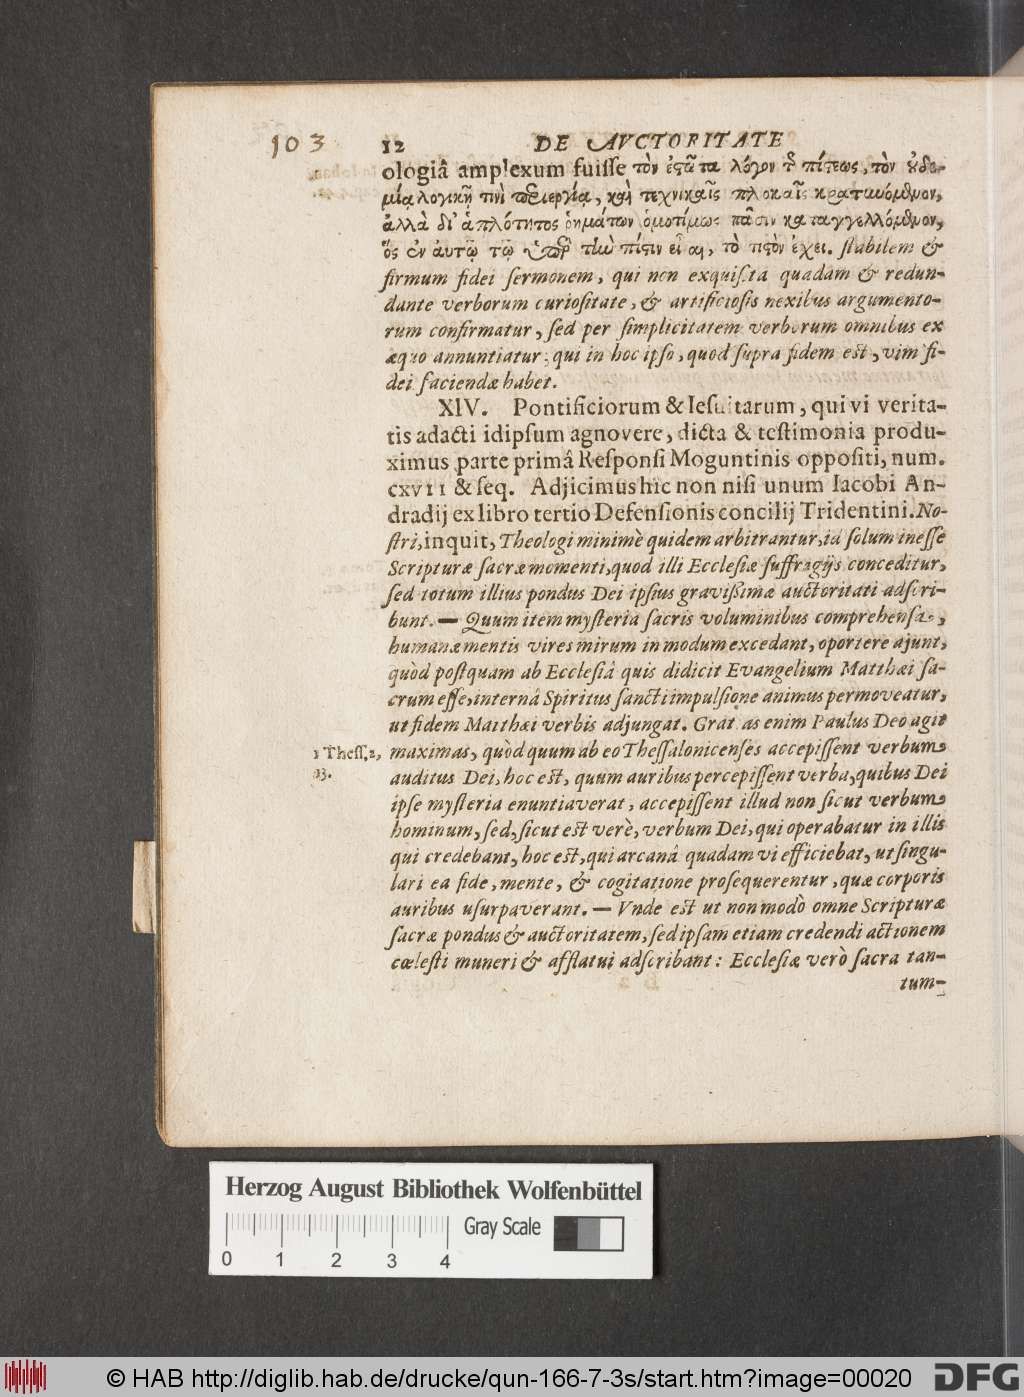 103
12 DE AVCTORITATE
ologiâ amplexum fuisse τὸν ἑςῶτα λόγον τ͂ πίςεως, τὸν ȣ̓δε-
μίᾳ λογικῇ τινὶ περιεργίᾳ, καὶ τεχνικαῖς πλοκαῖς κρατυνόμενον,
ἀλλὰ δι' ἁπλότητος ῥημάτων ὁμοτίμως πᾶσιν καταγγελλόμενον,
ὃς ἐν αὐτῷ τῷ ὑπὲρ τὴν πίςιν εἶναι, τὸ πιςὸν ἔχει. stabilem &
firmum fidei sermonem, qui non exquisita quadam & redun-
dante verborum curiositate, & artificiosis nexibus argumento-
rum confirmatur, sed per simplicitatem verborum omnibus ex
æquo annuntiatur; qui in hoc ipso, quod supra fidem est, vim fi-
dei faciendæ habet.
XIV. Pontificiorum & Iesuitarum, qui vi verita-
tis adacti idipsum agnovere, dicta & testimonia produ-
ximus parte primâ Responsi Moguntinis oppositi, num.
cxvii & seq. Adjicimus hic non nisi unum Iacobi An-
dradij ex libro tertio Defensionis concilij Tridentini. No-
stri, inquit, Theologi minimè quidem arbitrantur, id solum inesse
Scripturæ sacræ momenti, quod illi Ecclesiæ suffragijs conceditur,
sed totum illius pondus Dei ipsius gravissimæ auctoritati adscri-
bunt. — Quum item mysteria sacris voluminibus comprehensa,
humanæ mentis vires mirum in modum excedant, oportere ajunt,
quòd postquam ab Ecclesiâ quis didicit Evangelium Matthæi sa-
crum esse, internâ Spiritus sancti impulsione animus permoveatur,
ut fidem Matthæi verbis adjungat. Gratias enim Paulus Deo agit
1 Thess. 2, maximas, quòd quum ab eo Thessalonicenses accepissent verbum
13. auditus Dei, hoc est, quum auribus percepissent verba, quibus Dei
ipse mysteria enuntiaverat, accepissent illud non sicut verbum
hominum, sed, sicut est verè, verbum Dei, qui operabatur in illis
qui credebant, hoc est, qui arcanâ quadam vi efficiebat, ut singu-
lari ea fide, mente, & cogitatione prosequerentur, quæ corporis
auribus usurpaverant. — Vnde est ut non modò omne Scripturæ
sacræ pondus & auctoritatem, sed ipsam etiam credendi actionem
cœlesti muneri & afflatui adscribant: Ecclesiæ verò sacra tan-
tum-
Herzog August Bibliothek Wolfenbüttel
Gray Scale
0 1 2 3 4
© HAB http://diglib.hab.de/drucke/qun-166-7-3s/start.htm?image=00020
DFG